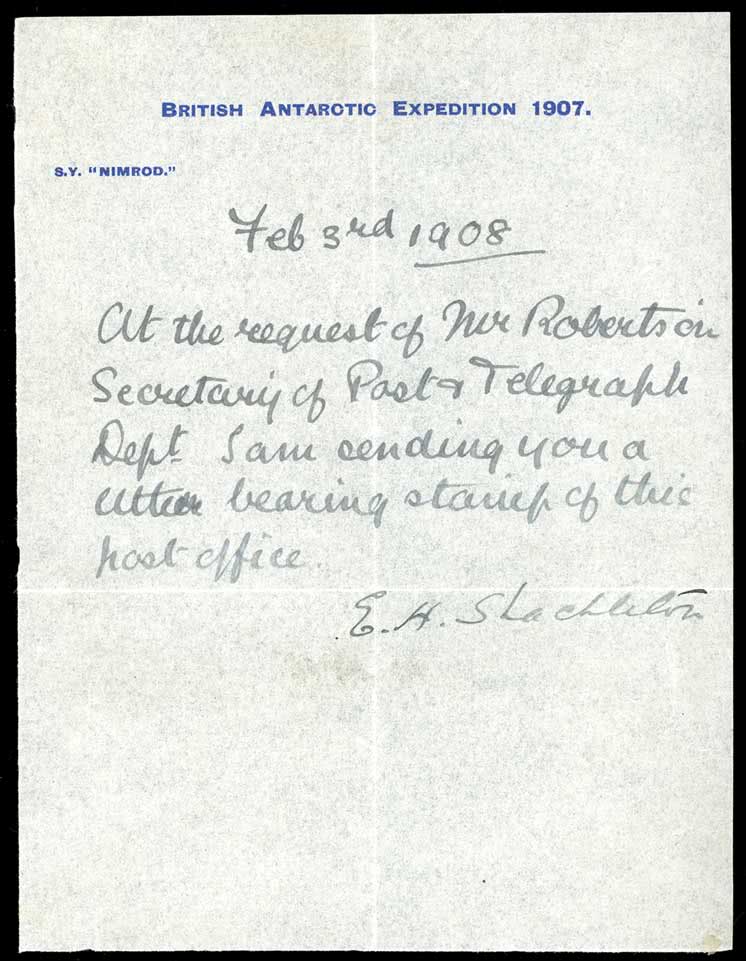 BRITISH ANTARCTIC EXPEDITION 1907.
S.Y. "NIMROD."
Feb 3rd 1908
At the request of Mr Robertson
Secretary of Post & Telegraph
Dept. I am sending you a
letter bearing stamp of this
post office.
E. H. Shackleton